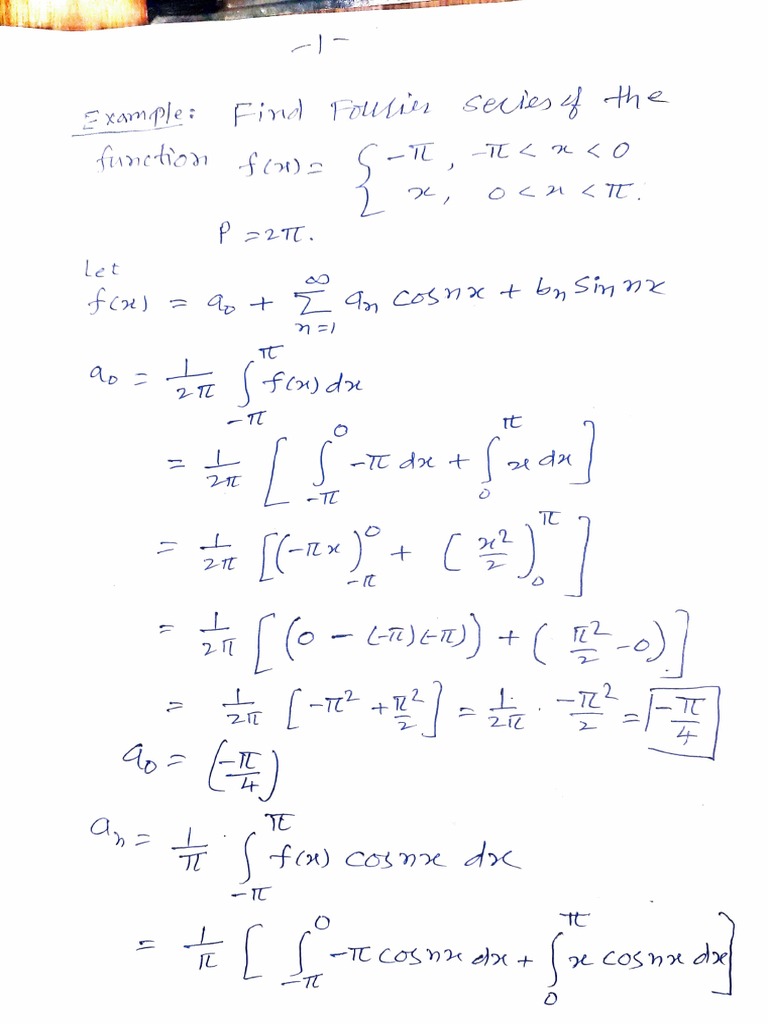 -1-
Example: Find Fourier series of the
function f(x) = { -π, -π < x < 0
x, 0 < x < π.
P = 2π.
Let
f(x) = a₀ + ∑_{n=1}^{∞} aₙ cos nx + bₙ sin nx
a₀ = 1/2π ∫_{-π}^{π} f(x) dx
= 1/2π [ ∫_{-π}^{0} -π dx + ∫_{0}^{π} x dx ]
= 1/2π [ (-πx)_{-π}^{0} + (x²/2)_{0}^{π} ]
= 1/2π [ (0 - (-π)(-π)) + (π²/2 - 0) ]
= 1/2π [ -π² + π²/2 ] = 1/2π · -π²/2 = -π/4
a₀ = (-π/4)
aₙ = 1/π ∫_{-π}^{π} f(x) cos nx dx
= 1/π [ ∫_{-π}^{0} -π cos nx dx + ∫_{0}^{π} x cos nx dx ]